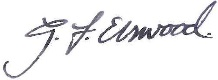 G. F. Elswood.